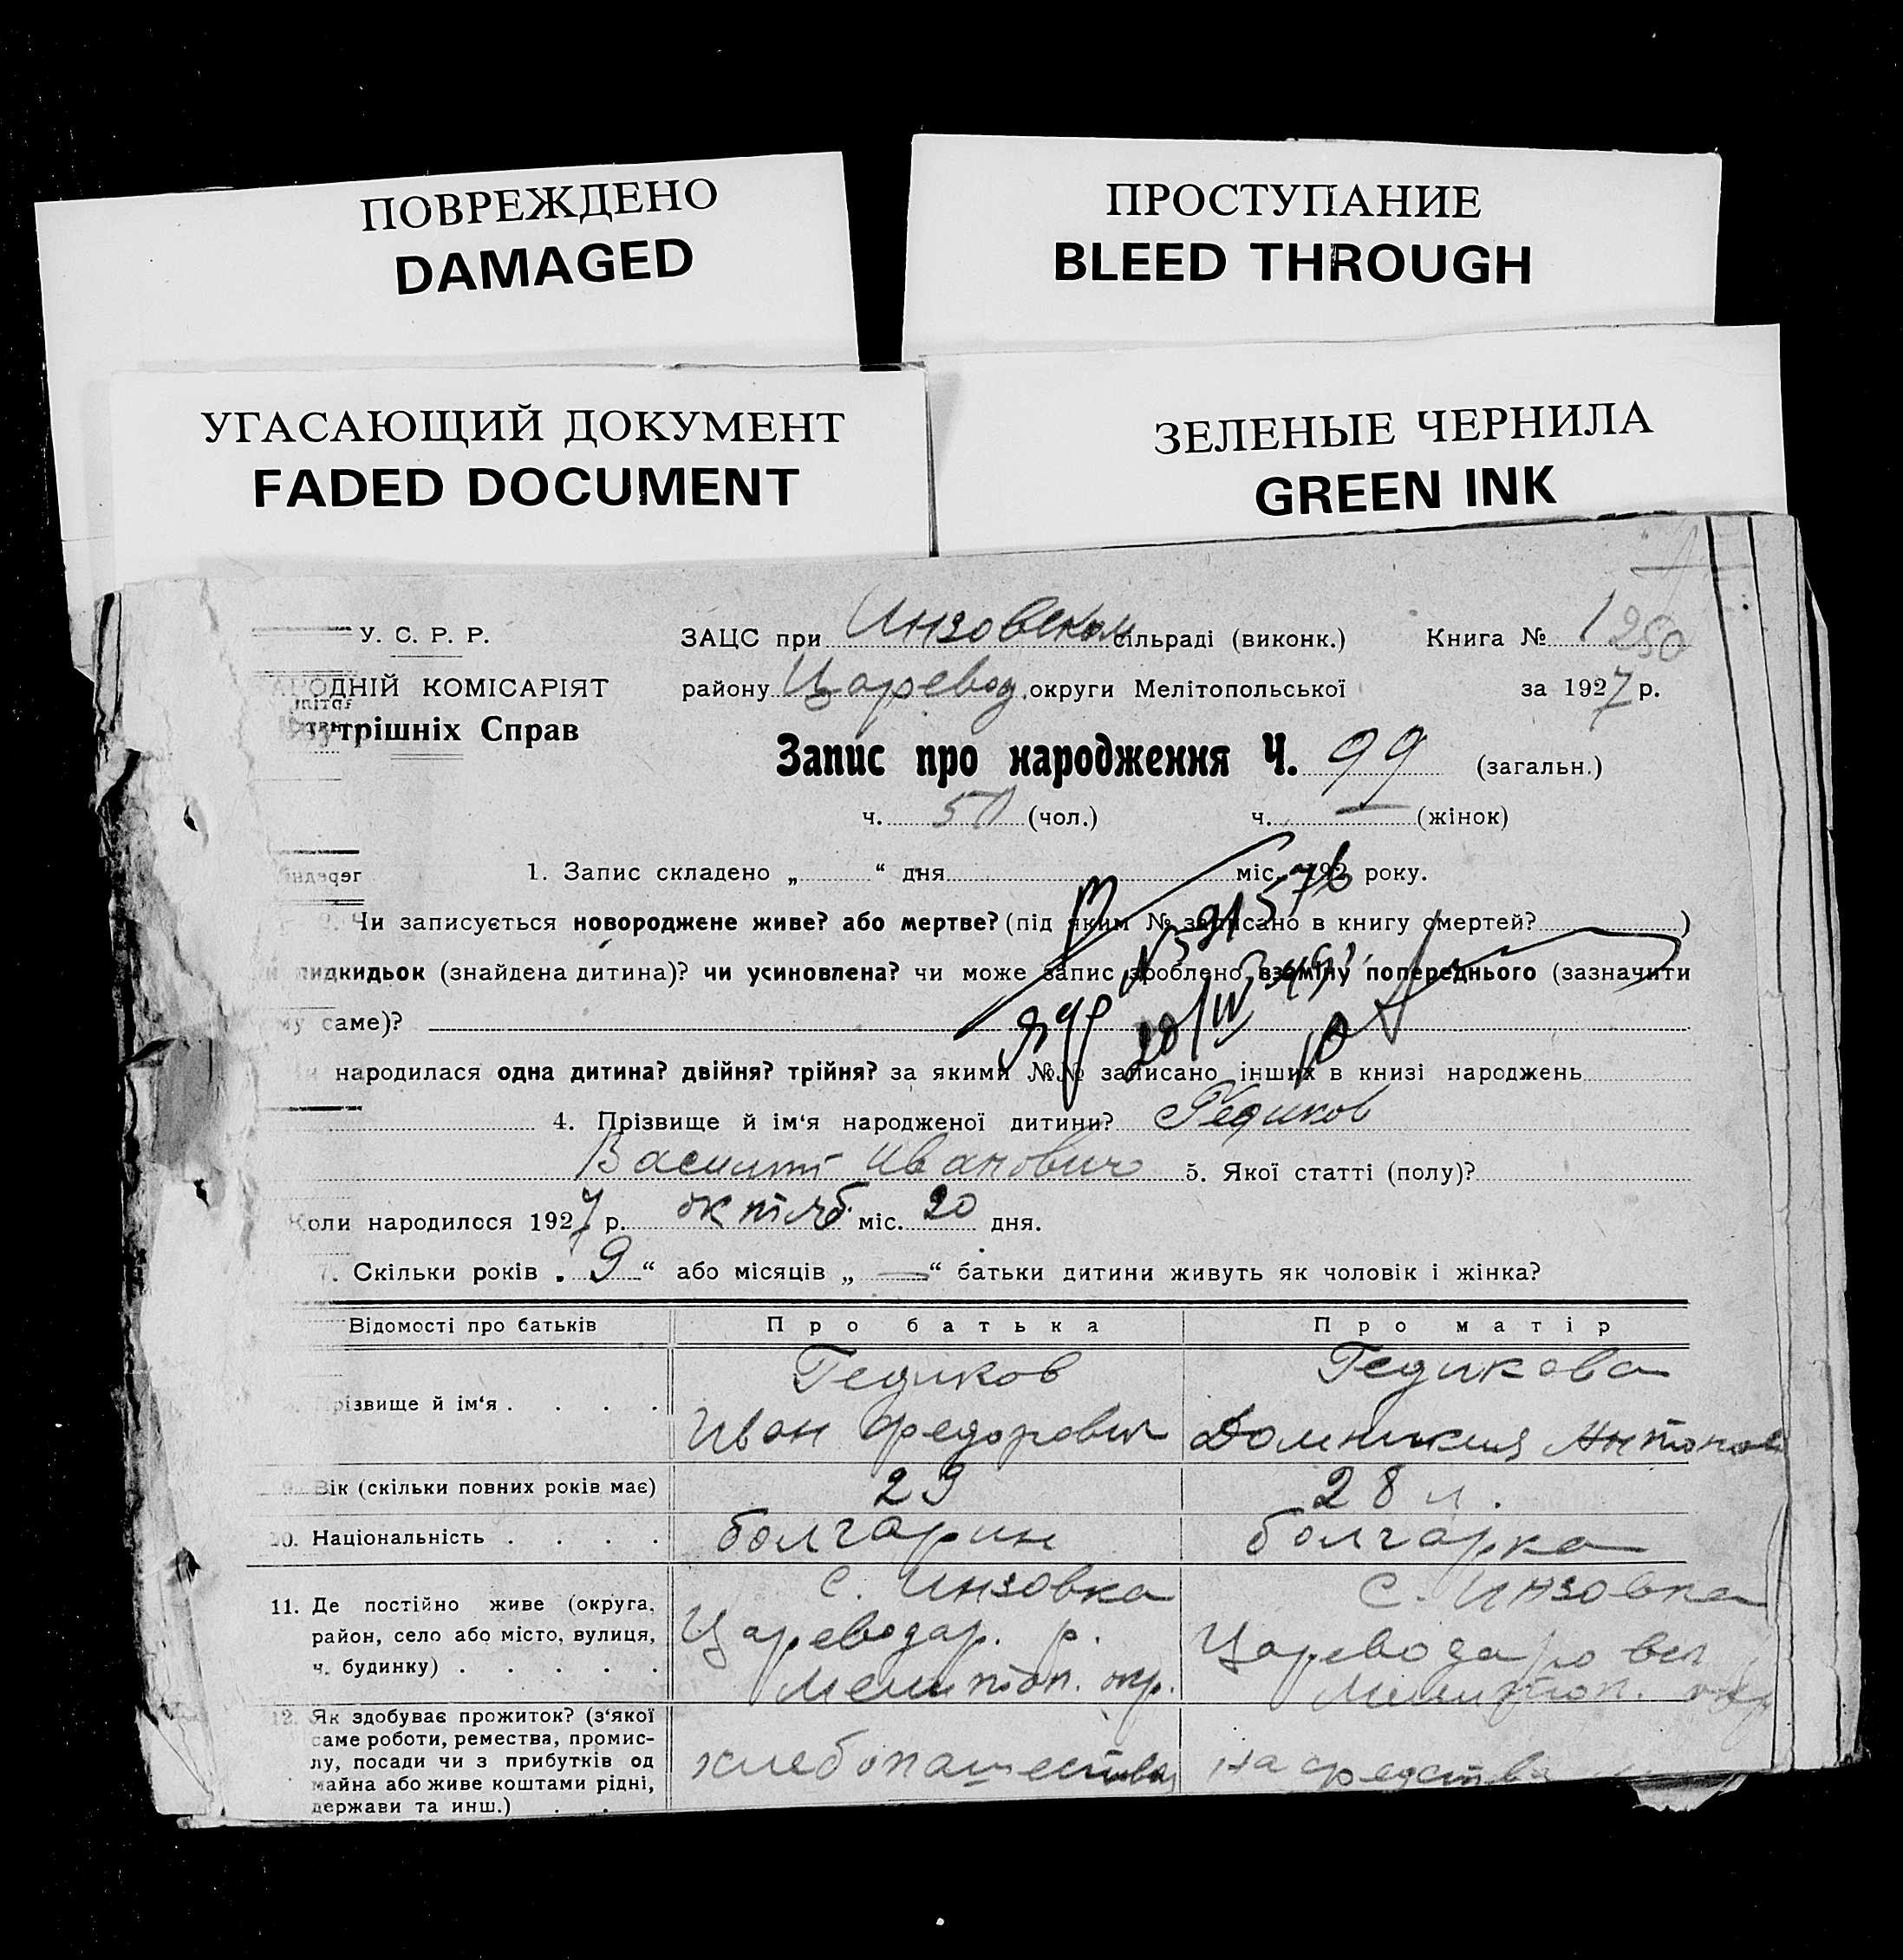 ПОВРЕЖДЕНО
DAMAGED
ПРОСТУПАНИЕ
BLEED THROUGH
УГАСАЮЩИЙ ДОКУМЕНТ
FADED DOCUMENT
ЗЕЛЕНЫЕ ЧЕРНИЛА
GREEN INK
У. С. Р. Р.
ЗАЦС при Инзовском сільраді (виконк.) Книга № 1 250
НАРОДНІЙ КОМІСАРІЯТ
району Царевод. округи Мелітопольської за 1927 р.
Внутрішніх Справ
Запис про народження Ч. 99 (загальн.)
ч. 50 (чол.) ч. — (жінок)
1. Запис складено „ “ дня міс. 192 року.
2. Чи записується новороджене живе? або мертве? (під яким № записано в книгу смертей? )
підкидьок (знайдена дитина)? чи усиновлена? чи може запис зроблено взаміну попереднього (зазначити
му саме)?
народилася одна дитина? двійня? трійня? за якими №№ записано інших в книзі народжень
4. Прізвище й ім‘я народженої дитини? Гедиков
Василий Иванович 5. Якої статті (полу)?
Коли народилося 1927 р. октяб. міс. 20 дня.
7. Скільки років „ 9 “ або місяців „ — “ батьки дитини живуть як чоловік і жінка?
Відомості про батьків Про батька Про матір
Гедиков Гедикова
Прізвище й ім‘я . . . .
Иван Федорович Домникия Антонов
9. Вік (скільки повних років має) 29 28 л.
10. Національність . . . . болгарин болгарка
11. Де постійно живе (округа, район, село або місто, вулиця, ч. будинку) . . . . .
с. Инзовка с. Инзовка
Цареводар. р. Цареводаровск
Мелитоп. окр. Мелитоп. окр
12. Як здобуває прожиток? (з‘якої
саме роботи, ремества, промис-
лу, посади чи з прибутків од
майна або живе коштами рідні,
держави та инш.) . .
хлебопашество на средства